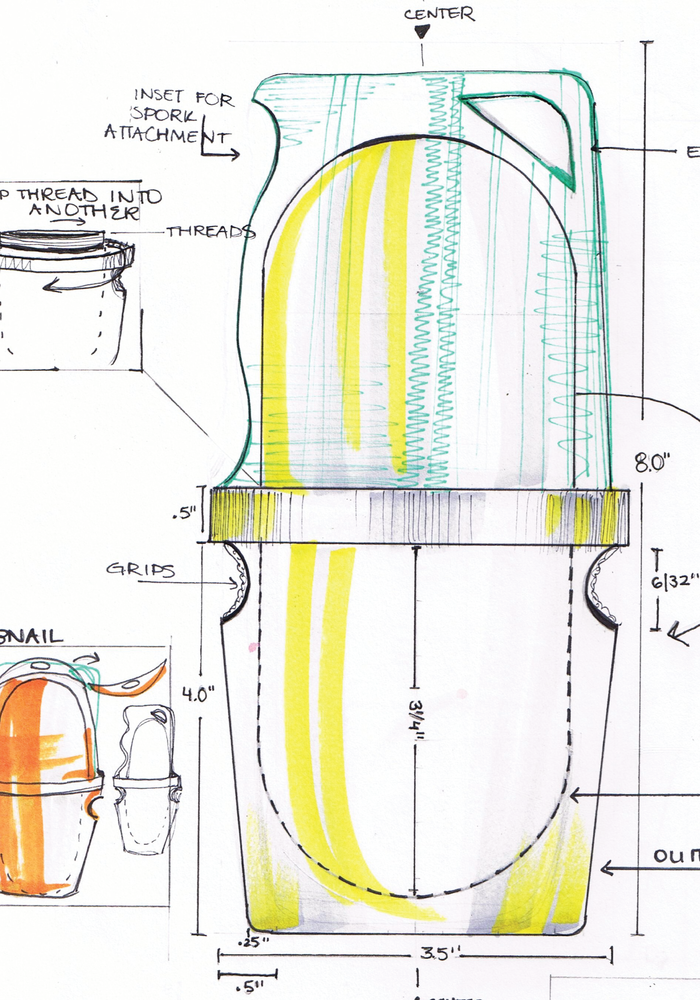 CENTER
INSET FOR
SPORK
ATTACHMENT
THREAD INTO
ANOTHER
THREADS
8.0"
.5"
GRIPS
6/32"
4.0"
3 1/4"
.25"
3.5"
.5"